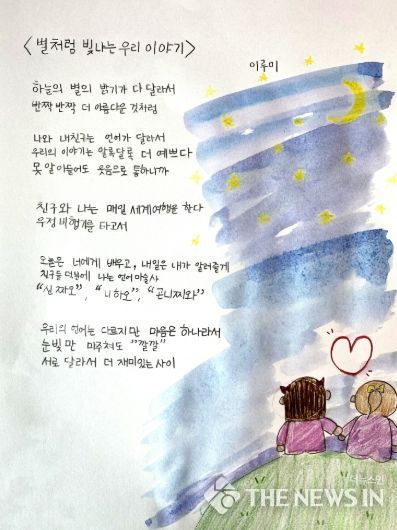 <별처럼 빛나는 우리 이야기>
이루미
하늘의 별의 밝기가 다 달라서
반짝 반짝 더 아름다운 것처럼
나와 내친구는 언어가 달라서
우리의 이야기는 알록달록 더 예쁘다
못 알아들어도 웃음으로 통하니까
친구와 나는 매일 세계여행을 한다
우정 비행기를 타고서
오늘은 너에게 배우고, 내일은 내가 알려줄게
친구들 덕분에 나는 언어마술사
"신짜오", "니하오", "곤니찌와"
우리의 언어는 다르지만 마음은 하나라서
눈빛만 마주쳐도 "깔깔"
서로 달라서 더 재미있는 사이
더뉴스인
THE NEWS IN